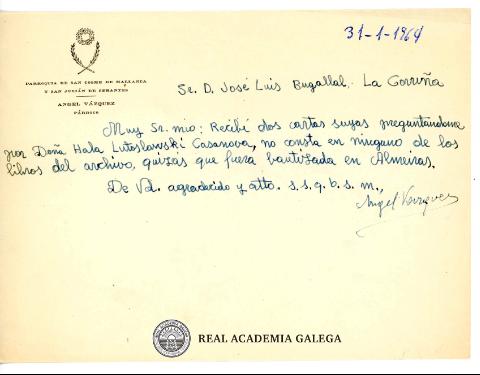 31-1-1964
PARROQUIA DE SAN COSME DE MALLANZA
Y SAN JULIÁN DE CERANTES
ANGEL VÁZQUEZ
PÁRROCO
Sr. D. José Luis Bugallal. La Corruña
Muy Sr. mio: Recibí dos cartas suyas preguntandome
por Doña Hala Lutoslowski Casanova, no consta en ninguno de los
libros del archivo, quizás que fuera bautizada en Almeiras.
De Vd. agradecido y atto. s. s. q. b. s. m.,
Angel Vazquez
REAL ACADEMIA GALEGA